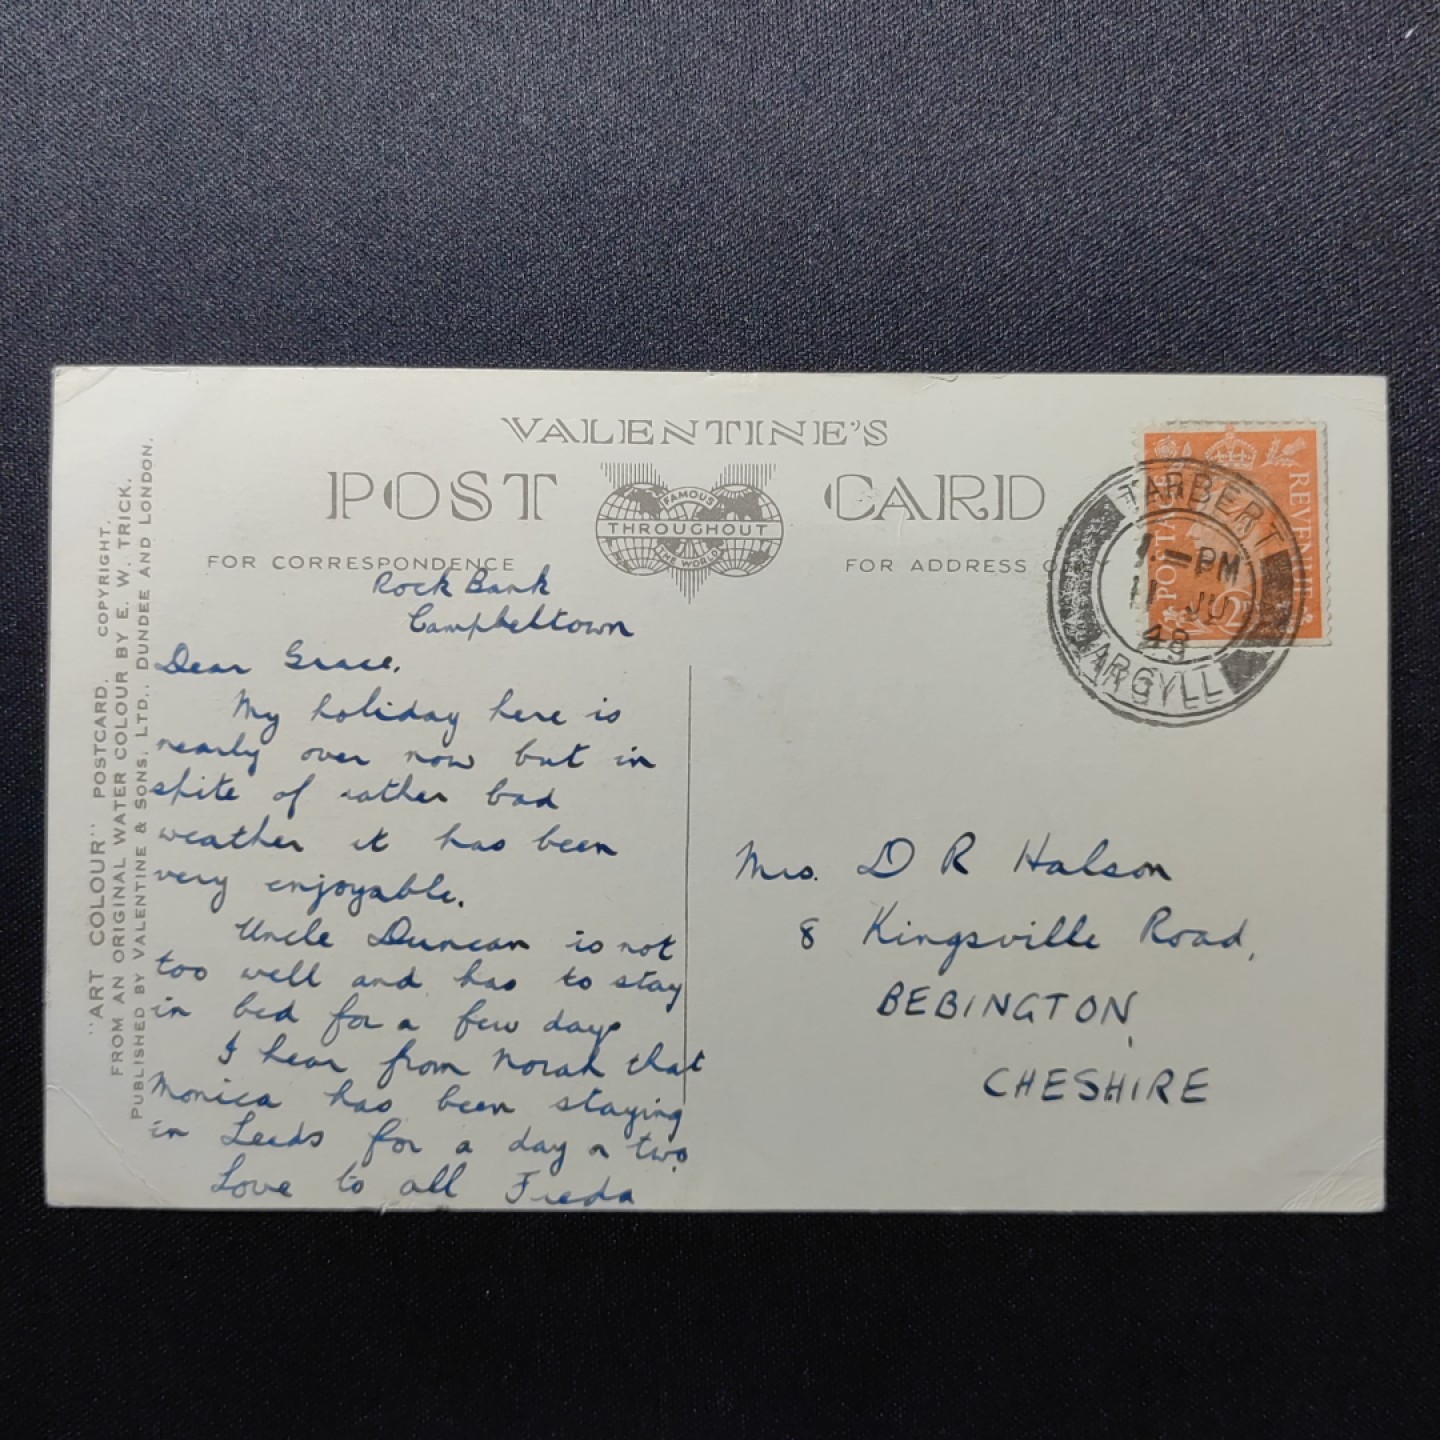 VALENTINE'S
POST CARD
FAMOUS
THROUGHOUT
THE WORLD
FOR CORRESPONDENCE
FOR ADDRESS O
"ART COLOUR" POSTCARD. COPYRIGHT.
FROM AN ORIGINAL WATER COLOUR BY E. W. TRICK.
PUBLISHED BY VALENTINE & SONS, LTD., DUNDEE AND LONDON.
Rock Bank
Campbeltown
Dear Grace,
My holiday here is
nearly over now but in
spite of rather bad
weather it has been
very enjoyable.
Uncle Duncan is not
too well and has to stay
in bed for a few days
I hear from Norah that
Monica has been staying
in Leeds for a day or two.
Love to all Freda
POSTAGE
REVENUE
2
TARBERT
PM
11 JU
48
ARGYLL
Mrs. D R Halson
8 Kingsville Road,
BEBINGTON,
CHESHIRE